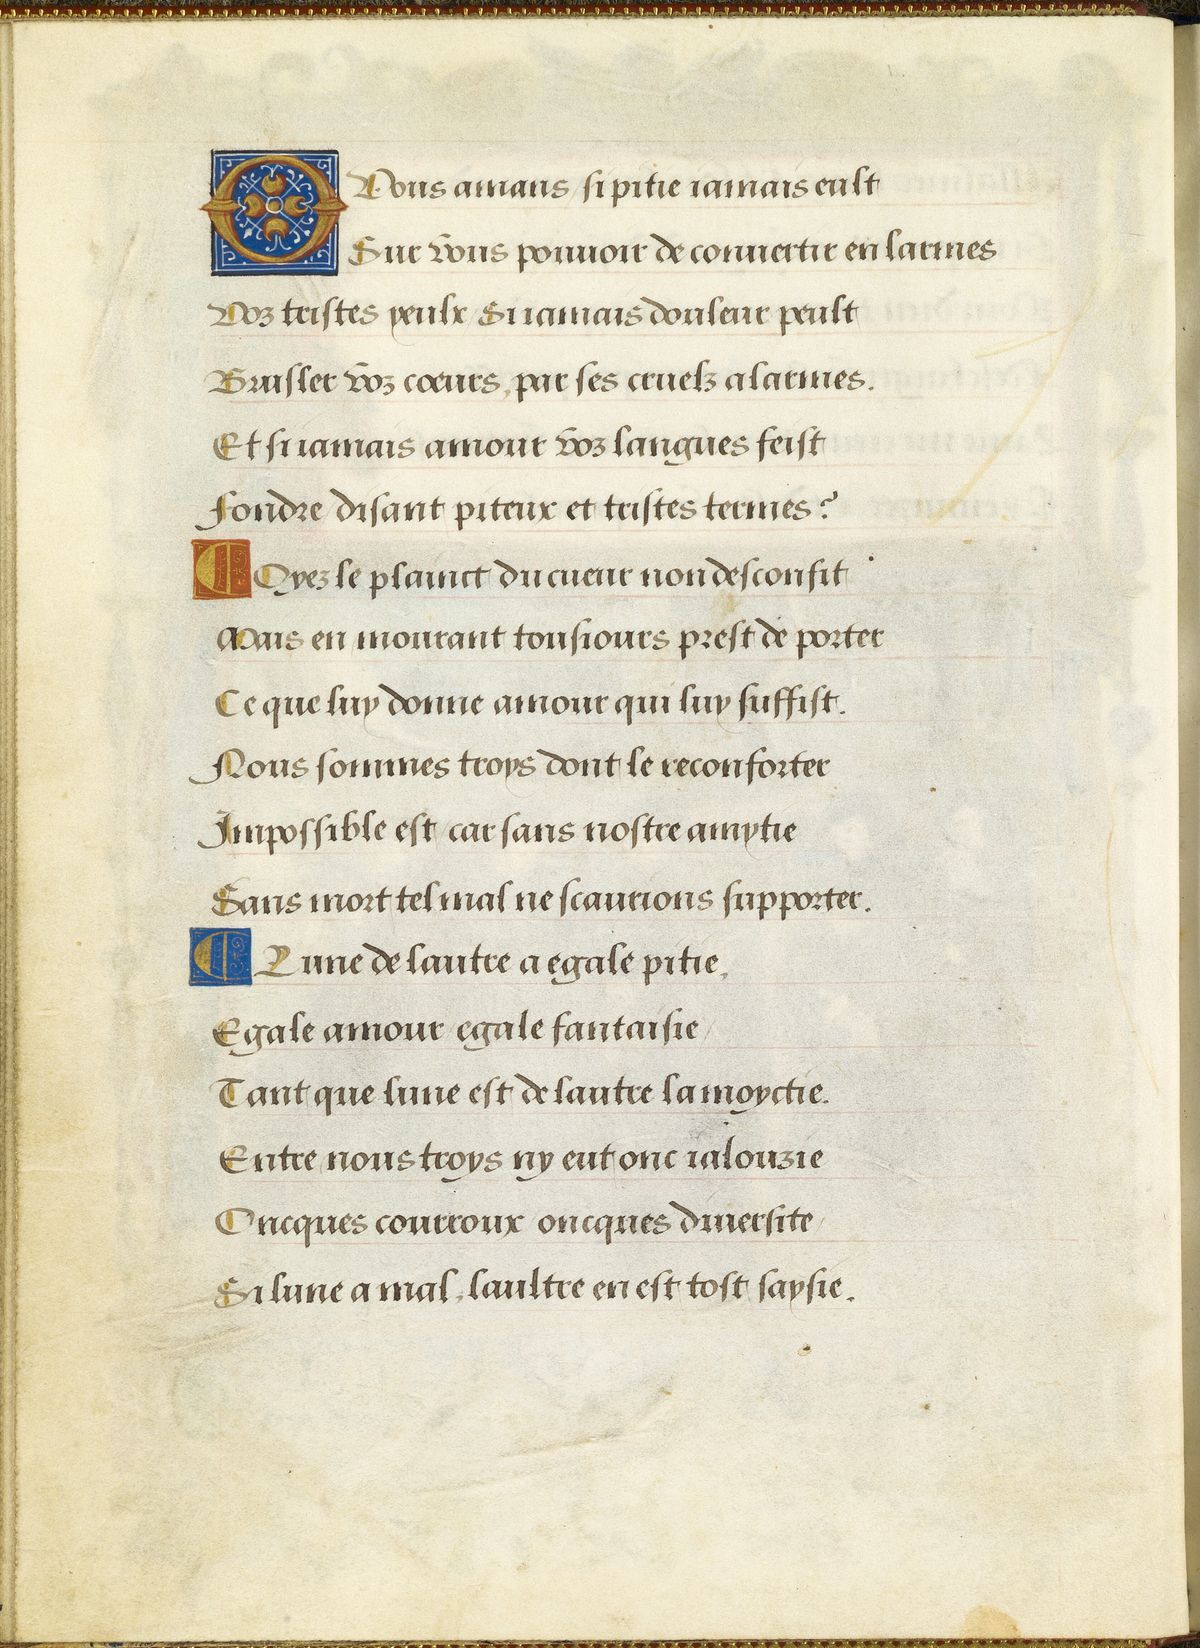 O Vous amans / si pitie iamais eust
Sur vous pouuoir de conuertir en larmes
Voz tristes yeulx / Si iamais douleur peult
Brusler voz cœurs, par ses cruelz alarmes.
Et si iamais amour voz langues feist
Fondre disant piteux et tristes termes?
Oyez le plainct du cueur non desconfit
Mais en mourant tousiours prest de porter
Ce que luy donne amour qui luy suffist.
Nous sommes troys dont le reconforter
Impossible est / car sans nostre amytie
Sans mort tel mal ne scaurions supporter.
Lune de lautre a egale pitie,
Egale amour egale fantaisie /
Tant que lune est de lautre la moyctie.
Entre nous troys ny eut onc ialouzie
Oncques courroux oncques diuersite /
Si lune a mal, laultre en est tost saysie.